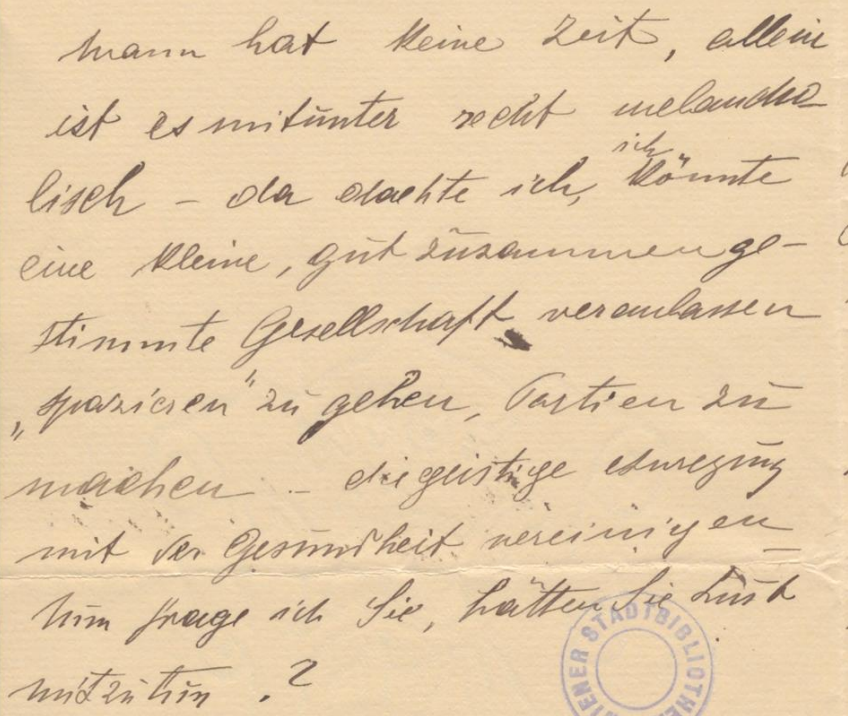 mann hat keine Zeit, allein
ist es mitunter recht melancho-
lisch – da dachte ich, ich könnte
eine kleine, gut zusammenge-
stimmte Gesellschaft veranlassen
„spazieren" zu gehen, Partien zu
machen – die geistige
mit der Gesundheit vereinigen –
Nun frage ich Sie, hätten Sie Lust
mitzutun .?
WIENER STADTBIBLIOTHEK